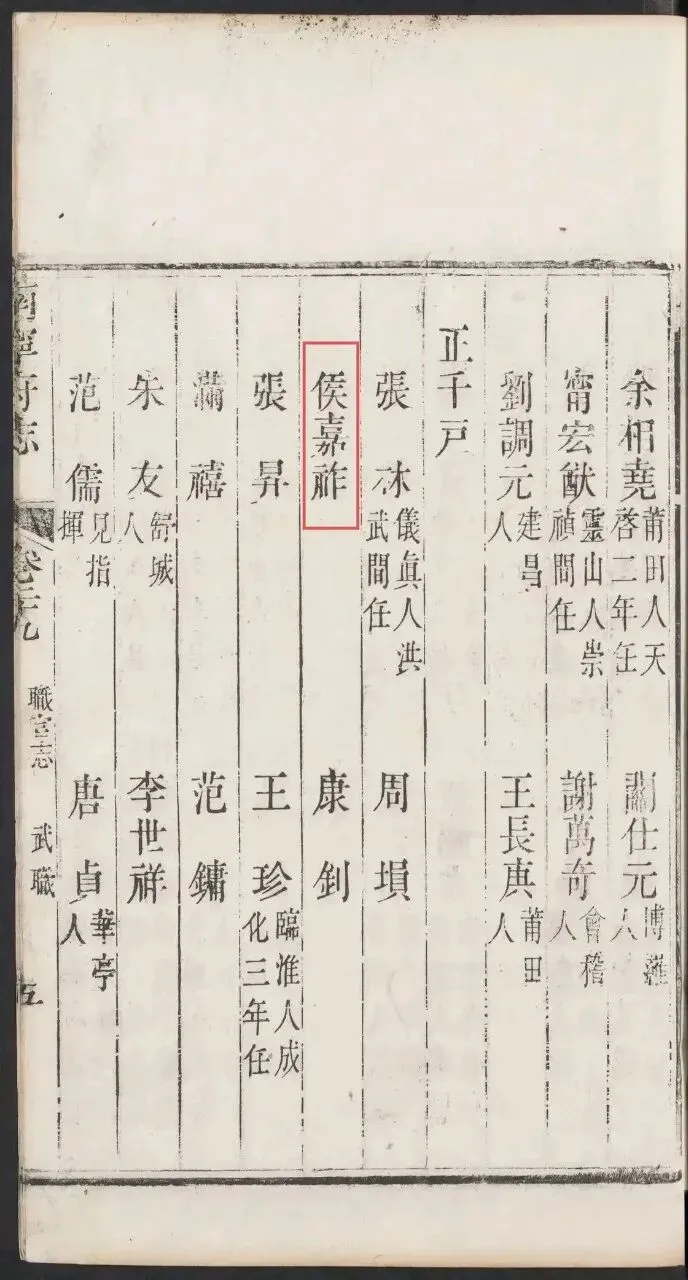 余相堯 莆田人天啓二年任 關仕元 博羅人
甯宏猷 靈山人崇禎間任 謝萬奇 會稽人
劉調元 建昌人 王長庚 莆田人
正千戸
張沐 儀眞人洪武間任 周塤
侯嘉祚 康釗
張昇 王珍 臨淮人成化三年任
滿禧 范鏞
朱友 舒城人 李世祥
范儒 見指揮 唐貞 華亭人
南寧府志 卷二十九 職官志 武職 五